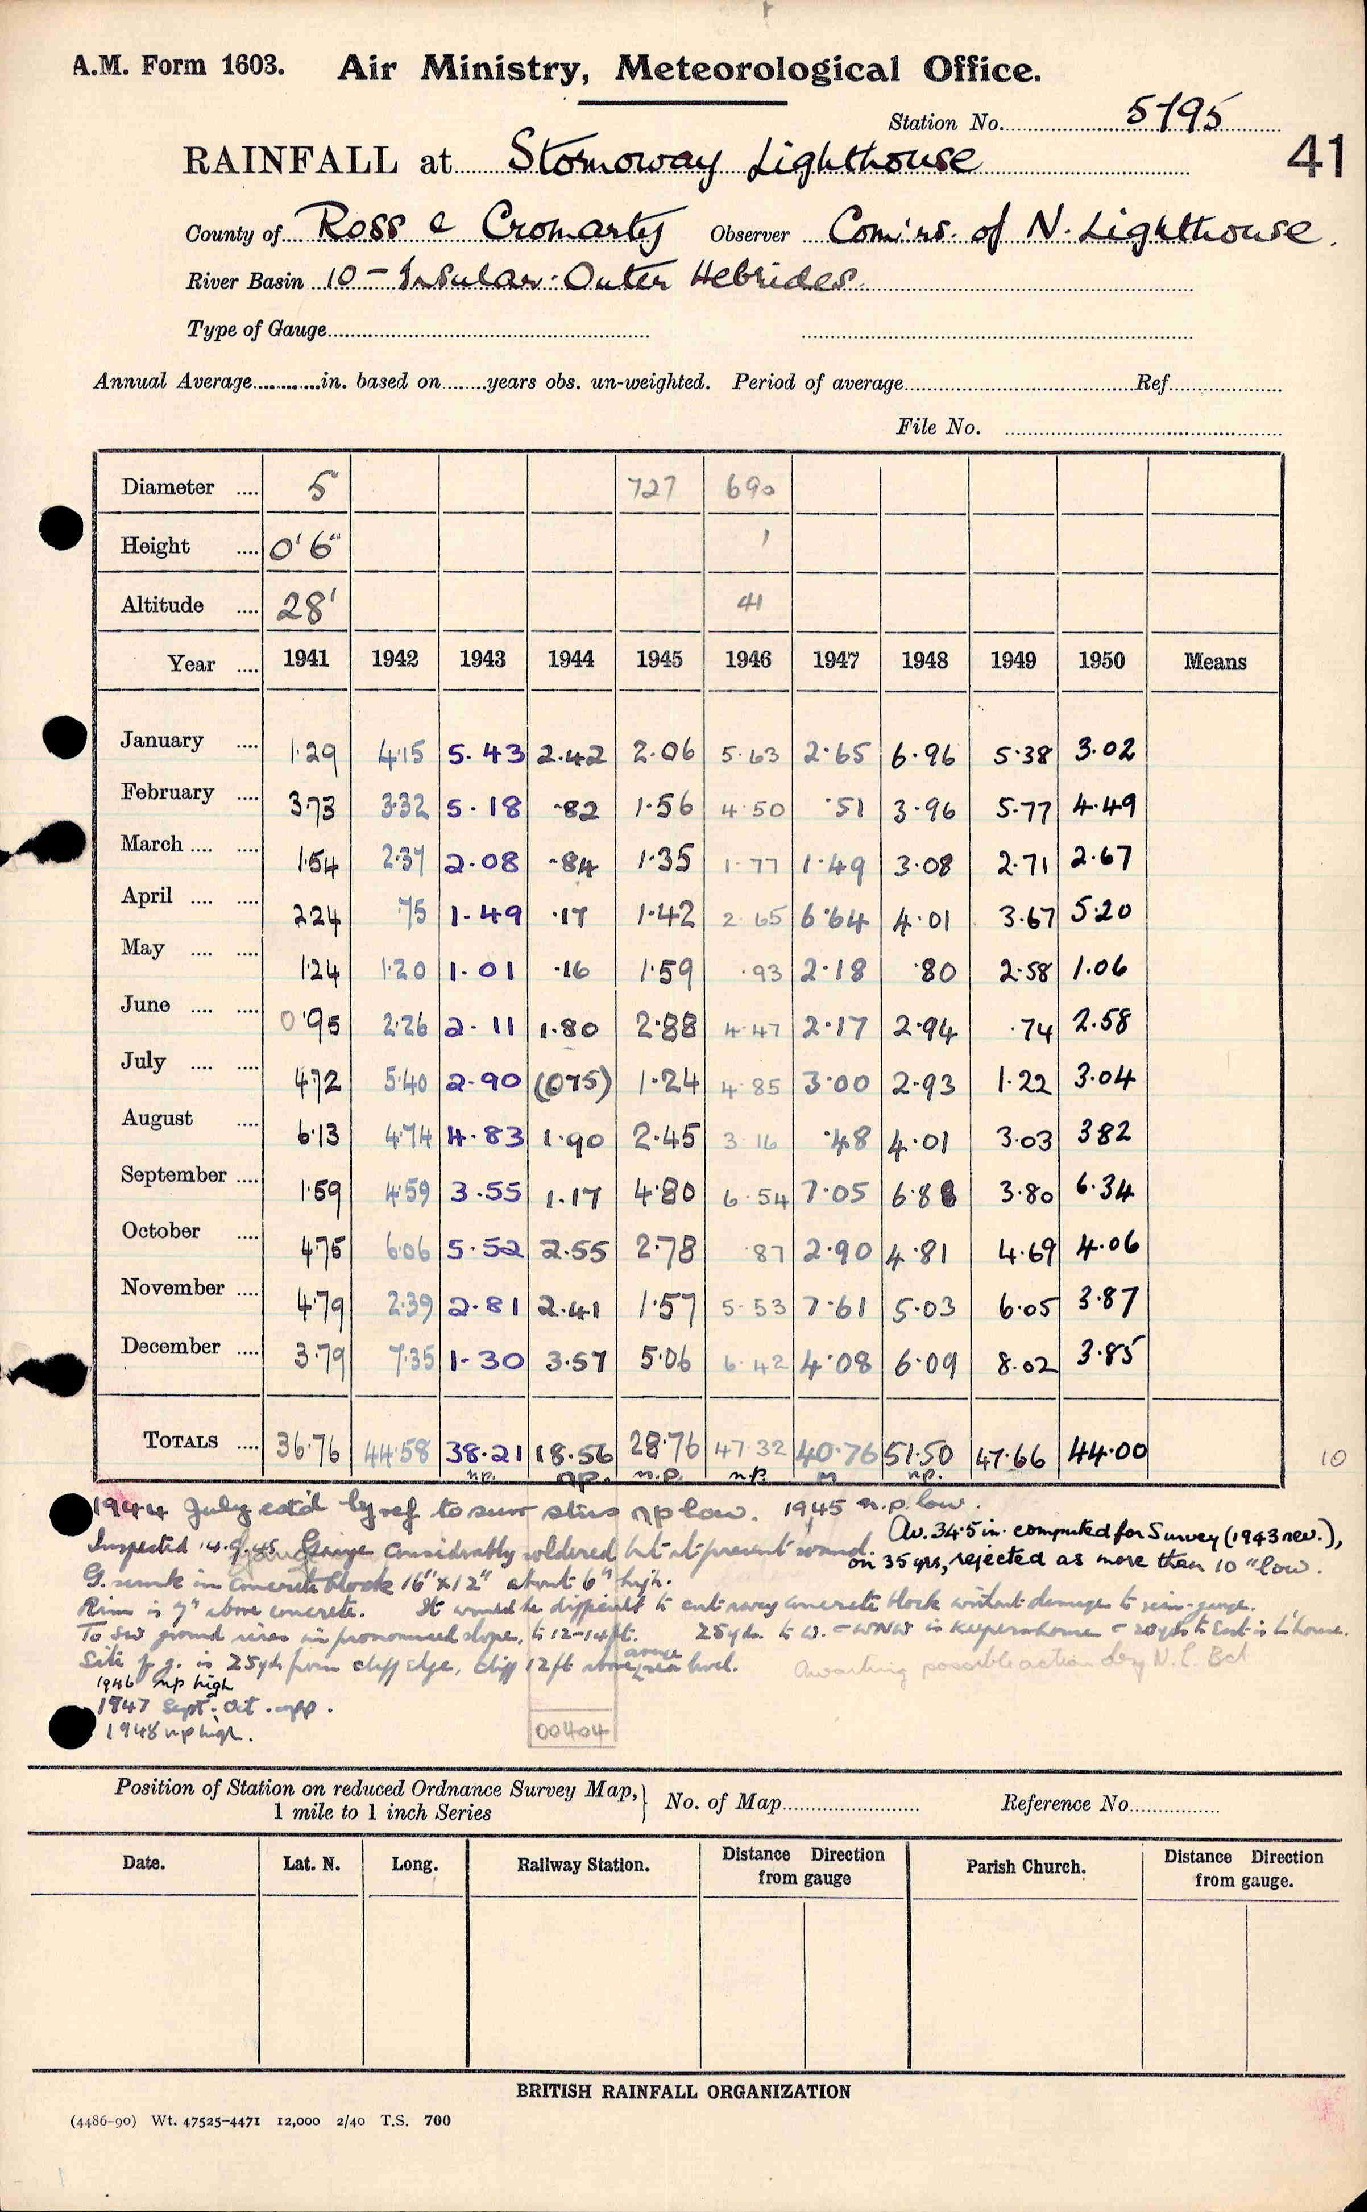 A.M. Form 1603. Air Ministry, Meteorological Office.
Station No. 5795
RAINFALL at Stornoway Lighthouse 41
County of Ross & Cromarty Observer Com'rs. of N. Lighthouse.
River Basin 10 – Insular: Outer Hebrides.
Type of Gauge
Annual Average in. based on years obs. un-weighted. Period of average Ref
File No.
Diameter 5 727 690
Height 0' 6" 1
Altitude 28' 41
Year 1941 1942 1943 1944 1945 1946 1947 1948 1949 1950 Means
January 1.29 4.15 5.43 2.42 2.06 5.63 2.65 6.96 5.38 3.02
February 3.73 3.32 5.18 .82 1.56 4.50 .51 3.96 5.77 4.49
March 1.54 2.37 2.08 .84 1.35 1.77 1.49 3.08 2.71 2.67
April 2.24 .75 1.49 .17 1.42 2.65 6.64 4.01 3.67 5.20
May 1.24 1.20 1.01 .16 1.59 .93 2.18 .80 2.58 1.06
June 0.95 2.26 2.11 1.80 2.88 4.47 2.17 2.94 .74 2.58
July 4.72 5.40 2.90 (0.75) 1.24 4.85 3.00 2.93 1.22 3.04
August 6.13 4.74 4.83 1.90 2.45 3.16 .48 4.01 3.03 3.82
September 1.59 4.59 3.55 1.17 4.80 6.54 7.05 6.88 3.80 6.34
October 4.75 6.06 5.52 2.55 2.78 .87 2.90 4.81 4.69 4.06
November 4.79 2.39 2.81 2.41 1.57 5.53 7.61 5.03 6.05 3.87
December 3.79 7.35 1.30 3.57 5.06 6.42 4.08 6.09 8.02 3.85
TOTALS 36.76 44.58 38.21 18.56 28.76 47.32 40.76 51.50 47.66 44.00 10
n.p. n.p. n.p. n.p. n.p.
1944 July est'd by ref to surr stns np low. 1945 n.p. low.
Av. 34.5 in. computed for Survey (1943 rev.),
on 35 yrs, rejected as more than 10" low.
Inspected 14.9.45 Gauge considerably soldered but at present sound.
G. sunk in concrete block 16" x 12" about 6" high.
Rim is 7" above concrete. It would be difficult to cut away concrete block without damage to rain-gauge.
To SW ground rises in pronounced slope, to 12-14 ft. 25 yds. to W. – WNW is Keepers home – 20 yds to East is L'house.
Site of g. is 25 yds from cliff edge, cliff 12 ft above sea level. Awaiting possible action by N.L. Bd
1946 np high
1947 Sept. Oct. app.
1948 np high.
00404
Position of Station on reduced Ordnance Survey Map,
1 mile to 1 inch Series
No. of Map Reference No.
Date. Lat. N. Long. Railway Station. Distance from gauge Direction Parish Church. Distance Direction from gauge.
BRITISH RAINFALL ORGANIZATION
(4486-90) Wt. 47525-4471 12,000 2/40 T.S. 700